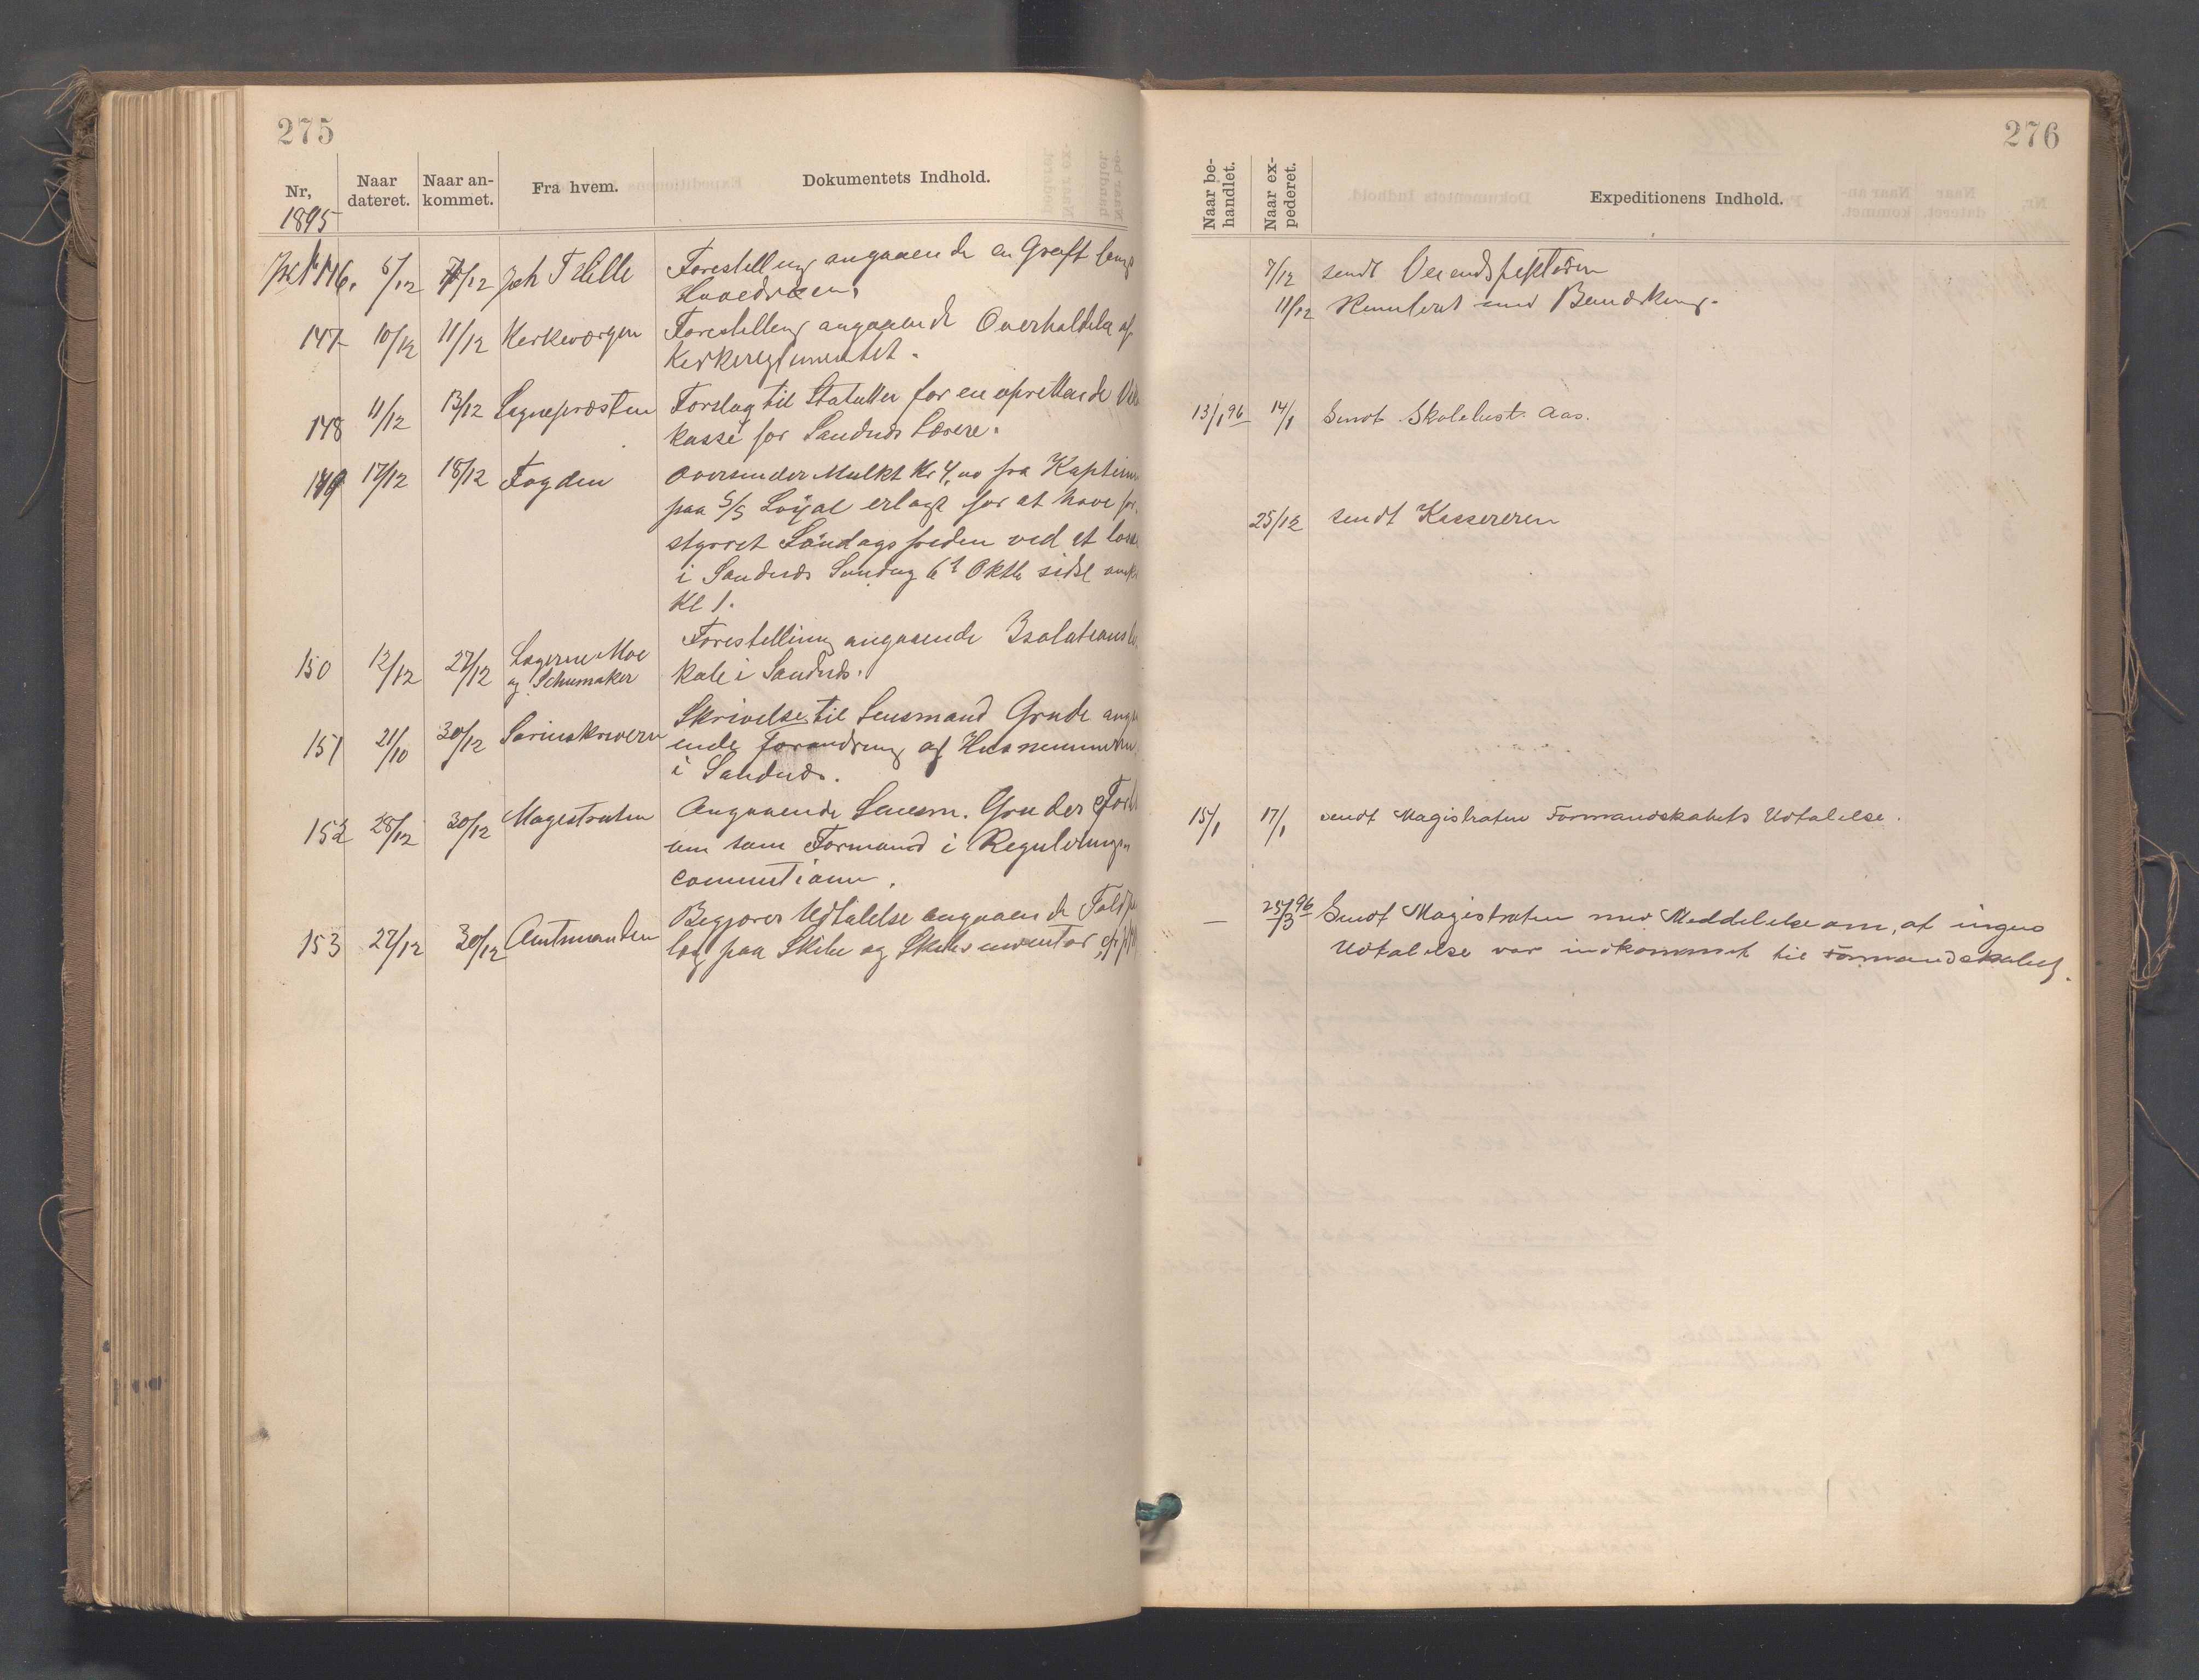 275
Nr,
Naar dateret.
Naar an-kommet.
Fra hvem.
Dokumentets Indhold.
1895
146. 6/12 7/12 Joh T Helle Forestilling angaaende en Grøft langs
Hovedveien.
147 10/12 11/12 Kirkeværgen Forestilling angaaende Overholdelse af
Kirkereglementet.
148 11/12 13/12 Sognepræsten Forslag til Statutter for en oprettende
kasse for Sandnæs Lærere.
149 17/12 18/12 Fogden Oversender Mulkt Kr 4,00 fra Kaptein
paa S/S Loyal erlagt for at have for-
styrret Søndagsfreden ved at losse
i Sandnæs Søndag 6t Oktb sidst
Kl 1.
150 12/12 27/12 Lægerne Moe
og Schumaker
Forestilling angaaende Isolationslo-
kale i Sandnæs.
151 21/10 30/12 Sorinskriveren Skrivelse til Lensmand Grude anga-
ende forandring af Husnummeren
i Sandnæs.
152 28/12 30/12 Magistraten Angaaende Lensm. Grudes
som Formand i Regulerings
commissionen.
153 27/12 30/12 Amtmanden Begjærer Udtalelse angaaende
paa Skibe og Skibsinventar
276
Naar be-handlet.
Naar ex-pederet.
Expeditionens Indhold.
7/12 sendt Veiinspektøren
11/12 Remitteret med Bemærkning.
13/1 96 14/1 Sendt Skolebest. Aas.
25/12 sendt Kassereren
15/1 17/1 sendt Magistraten Formandskabets Udtalelse.
— 25/3 96 Sendt Magistraten med Meddelelse om, at ingen
Udtalelse var indkommet til Formandskabet.